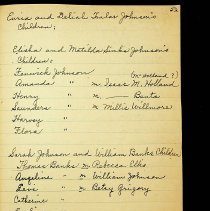 52
Curse and Delilah Tinlar Johnson's
Children:
Elisha and Matilda Links Johnson's
Children:
Fenwick Johnson (or Holland?)
Amanda " m Isaac M. Holland
Henry " m —— Bants
Saunders " m Mellie Willmore
Harvey "
Flora "
Sarah Johnson and William Banks Children
Thomas Banks m Rebecca Ellis
Angeline " m William Johnson
" m Betsy Grigory
Catherine "